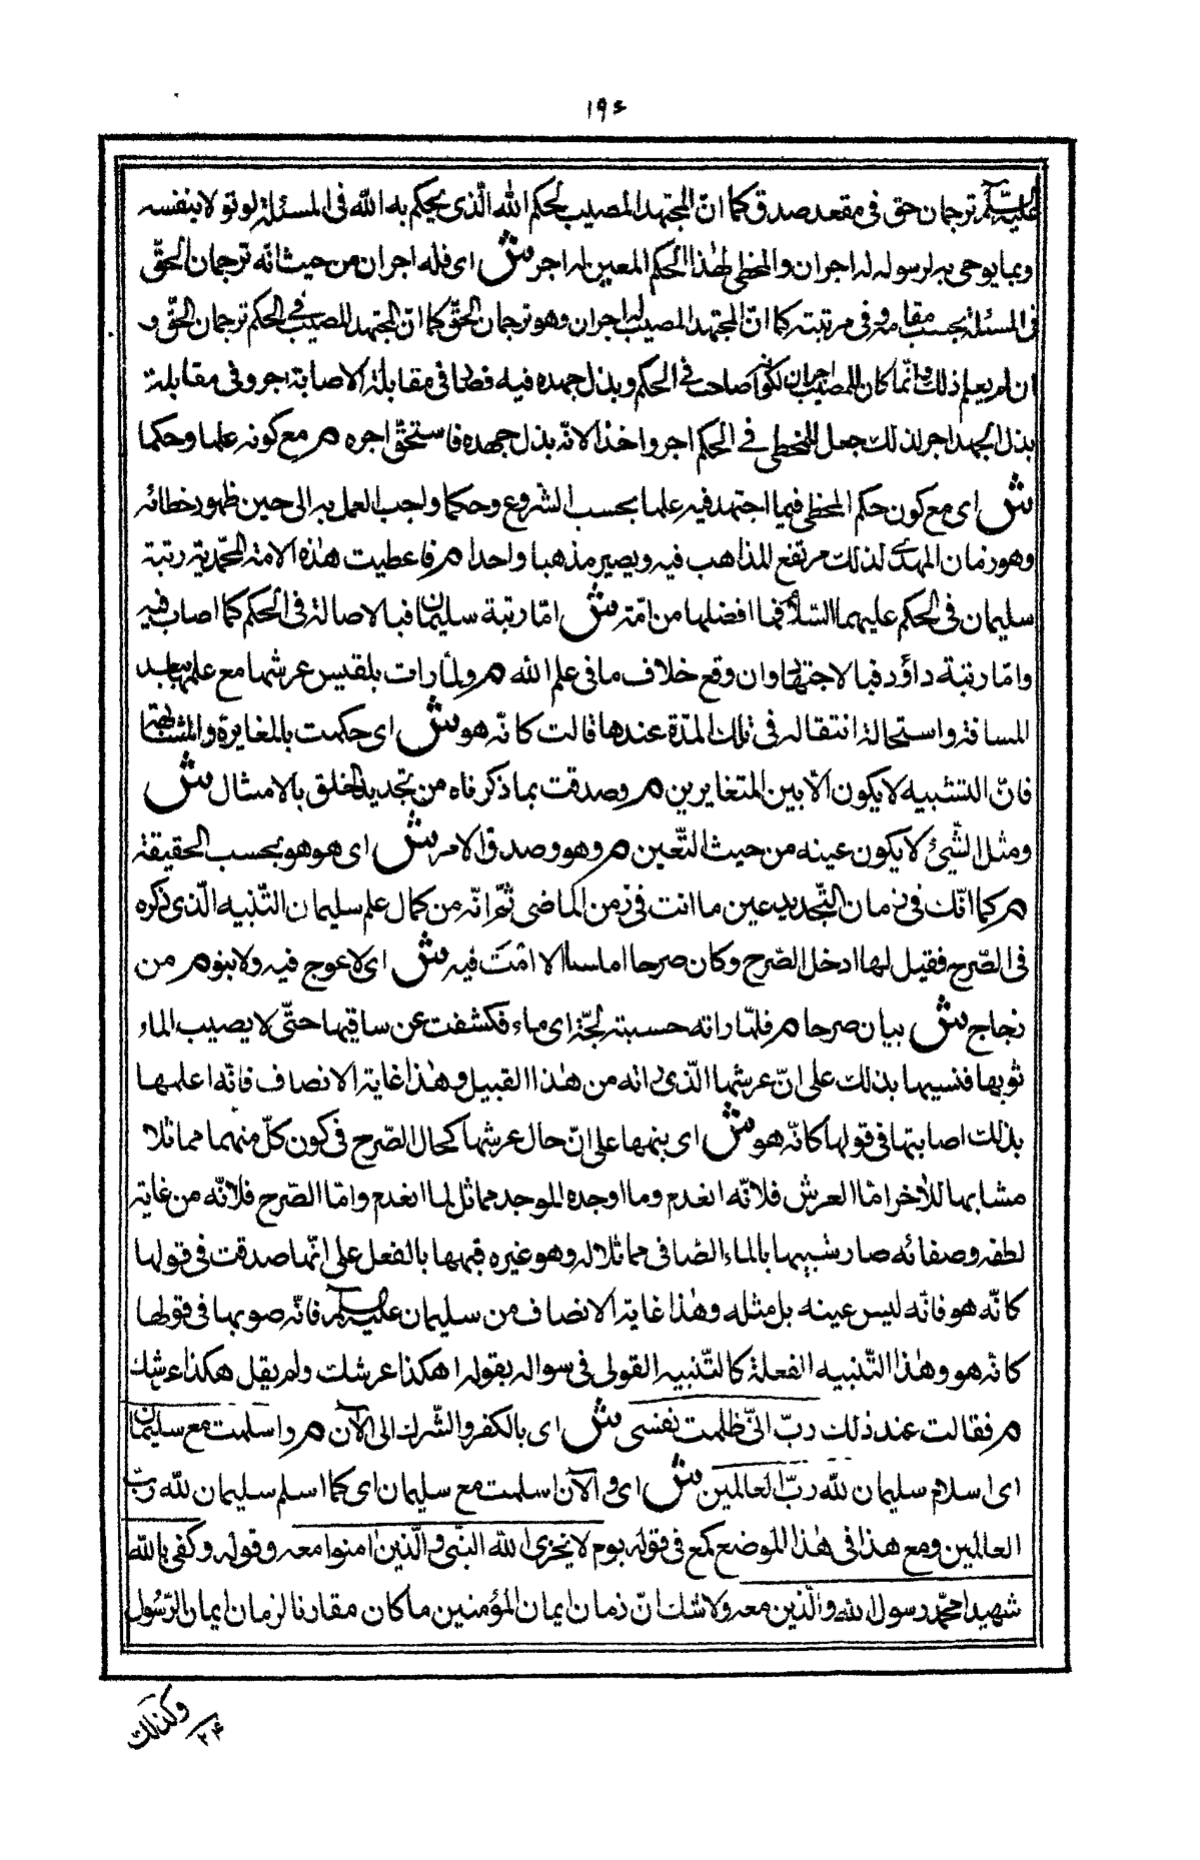 ١٩٤
عليه السّلم ترجمان حق فى مقعد صدق كما انّ المجتهد المصيب لحكم الله الّذى يحكم به الله فى المسئلة لو تولاه بنفسه
وبما يوحى به لرسوله له اجران والمخطى لهذا الحكم المعين له اجر ش اى فله اجران من حيث انّه ترجمان الحقّ
فى المسئلة بحسب مقامه وفى مرتبته كما انّ المجتهد المصيب له اجران وهو ترجمان الحقّ كما انّ المجتهد المصيب فى الحكم ترجمان الحقّ و
ان لم يعلم ذلك وانّما كان للمصيب اجران لكونه اصاب فى الحكم وبذل جهده فيه فصار فى مقابلة الاصابة اجر وفى مقابلة
بذل الجهد اجر لذلك جعل للمخطى فى الحكم اجر واخذا لانّه بذل جهده فاستحقّ اجره م مع كونه علما وحكما
ش اى مع كون حكم المخطى فيما اجتهد فيه علما بحسب الشروع وحكما واجب العمل به الى حين ظهور خطائه
وهو زمان المهدى لذلك مرتفع المذاهب فيه ويصير مذهبا واحدا م فاعطيت هذه الامة المحمّدية رتبة
سليمان فى الحكم عليهما السّلام فما افضلها من امّة ش امّا رتبة سليمان فبالاصالة فى الحكم كما اصاب فيه
وامّا رتبة داؤد فبالاجتهاد وان وقع خلاف ما فى علم الله م ولمّا رات بلقيس عرشها مع علمها ببعد
المسافة واستحالة انتقاله فى تلك المدّة عندها قالت كانّه هو ش اى حكمت بالمغايرة والمشابهة
فانّ التشبيه لا يكون الّا بين المتغايرين م وصدقت بما ذكرناه من تجديد الخلق بالامثال ش
ومثل الشّئ لا يكون عينه من حيث التعّين م وهو وصدق الامر ش اى هو هو بحسب الحقيقة
م كما انّك فى زمان التّجديد عين ما انت فى زمن الماضى ثمّ انّه من كمال علم سليمان التّنبيه الّذى ذكره
فى الصّرح فقيل لها ادخل الصّرح وكان صرحا املسا لا امْتَ فيه ش اى لا عوج فيه ولا بنو م من
زجاج ش بيان صرحا م فلمّا راته حسبته لجّة اى ماء فكشفت عن ساقيها حتّى لا يصيب الماء
ثوبها فنبهها بذلك على انّ عرشها الّذى راته من هذا القبيل وهذا غاية الانصاف فانّه اعلمها
بذلك اصابتها فى قولها كانّه هو ش اى بنهها على انّ حال عرشها كحال الصّرح فى كون كلّ منهما مماثلا
مشابها للأخر امّا العرش فلانّه انعدم وما اوجده الموجد مماثل لما انعدم وامّا الصّرح فلانّه من غاية
لطفه وصفائه صار شبيها بالماء الصّافى مماثلا له وهو غيره فنبهها بالفعل على انّها صدقت فى قولها
كانّه هو فانّه ليس عينه بل مثله وهذا غاية الانصاف من سليمان عليه السّلم فانّه صوبها فى قولها
كانّه هو وهذا التّنبيه الفعلة كالتّنبيه القولى فى سواله بقوله اهكذا عرشك ولم يقل هكذا عرشك
م فقالت عند ذلك ربّ انّى ظلمت نفسى ش اى بالكفر والشّرك الى الآن م واسلمت مع سليمان
اى اسلام سليمان لله ربّ العالمين ش اى والآن اسلمت مع سليمان اى كما اسلم سليمان لله ربّ
العالمين ومع هذا فى هذا الموضع كمع فى قوله يوم لا يخزى الله النّبى والّذين امنوا معه وقوله وكفى بالله
شهيدا محمّد رسول الله والّذين معه ولا شك انّ زمان ايمان المؤمنين ما كان مقارنا لزمان ايمان الرّسول
وكذلك
٢۴